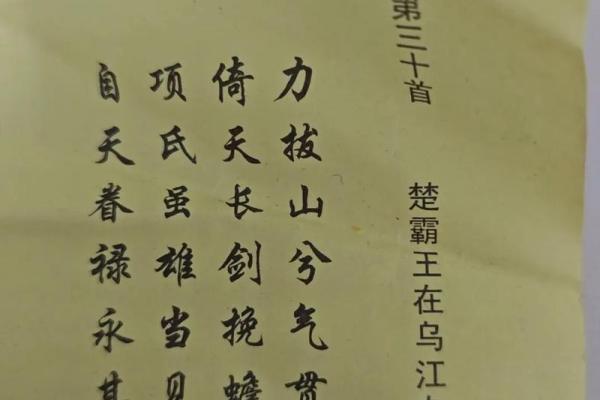 第三十首 楚霸王在乌江
力拔山兮气贯
倚天长剑挽蟾
项氏虽雄当见
自天眷禄永其